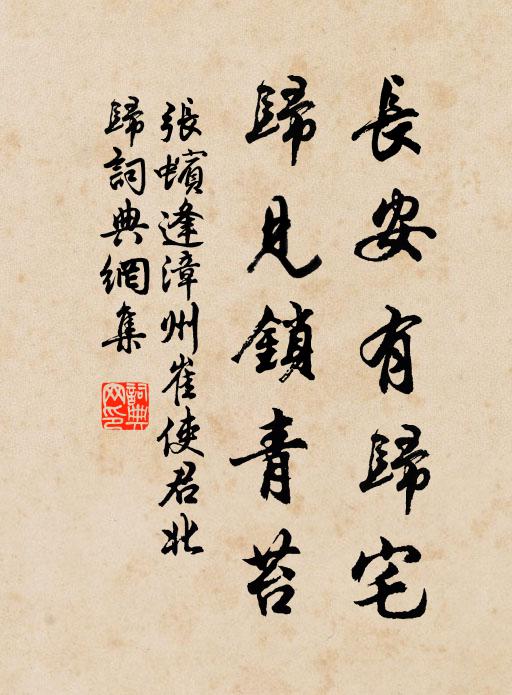 長安有歸宅
歸見鎖青苔
張蠙逢漳州崔使君北
歸詞典網集
詞典网印